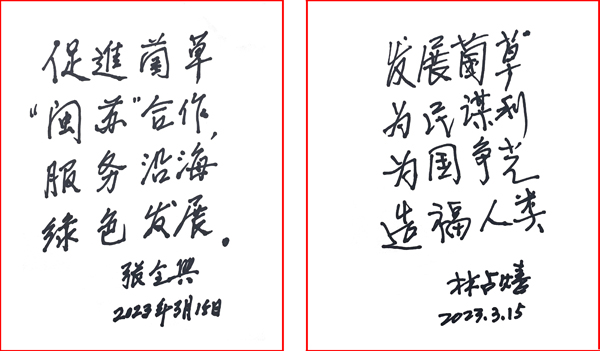 促進菌草
“闽苏”合作,
服务沿海
綠色发展。
张全興
2023年3月15日
发展菌草
为民谋利
为国争光
造福人类
林占熺
2023.3.15